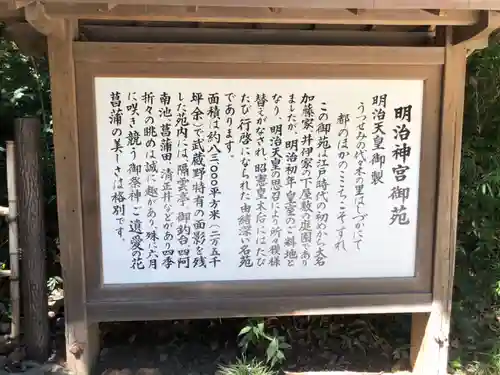 明治神宮御苑
明治天皇御製
うつせみの代々木の里はしづかにて
都のほかのここちこそすれ
この御苑は江戸時代の初めから大名
加藤家、井伊家の下屋敷の庭園であり
ましたが、明治初年、皇室のご料地と
なり、明治天皇の思召により、所々模様
替えがなされ、昭憲皇太后にはたび
たび行啓になられた由緒深い名苑
であります。
面積は八三、〇〇〇平方米(二万五千
坪余)で武蔵野特有の面影を残
した苑内には、隔雲亭、御釣台、四阿
南池、菖蒲田、清正井などがあり四季
折々の眺めは誠に趣があり、殊に六月
に咲き競う御祭神ご遺愛の花
菖蒲の美しさは格別です。